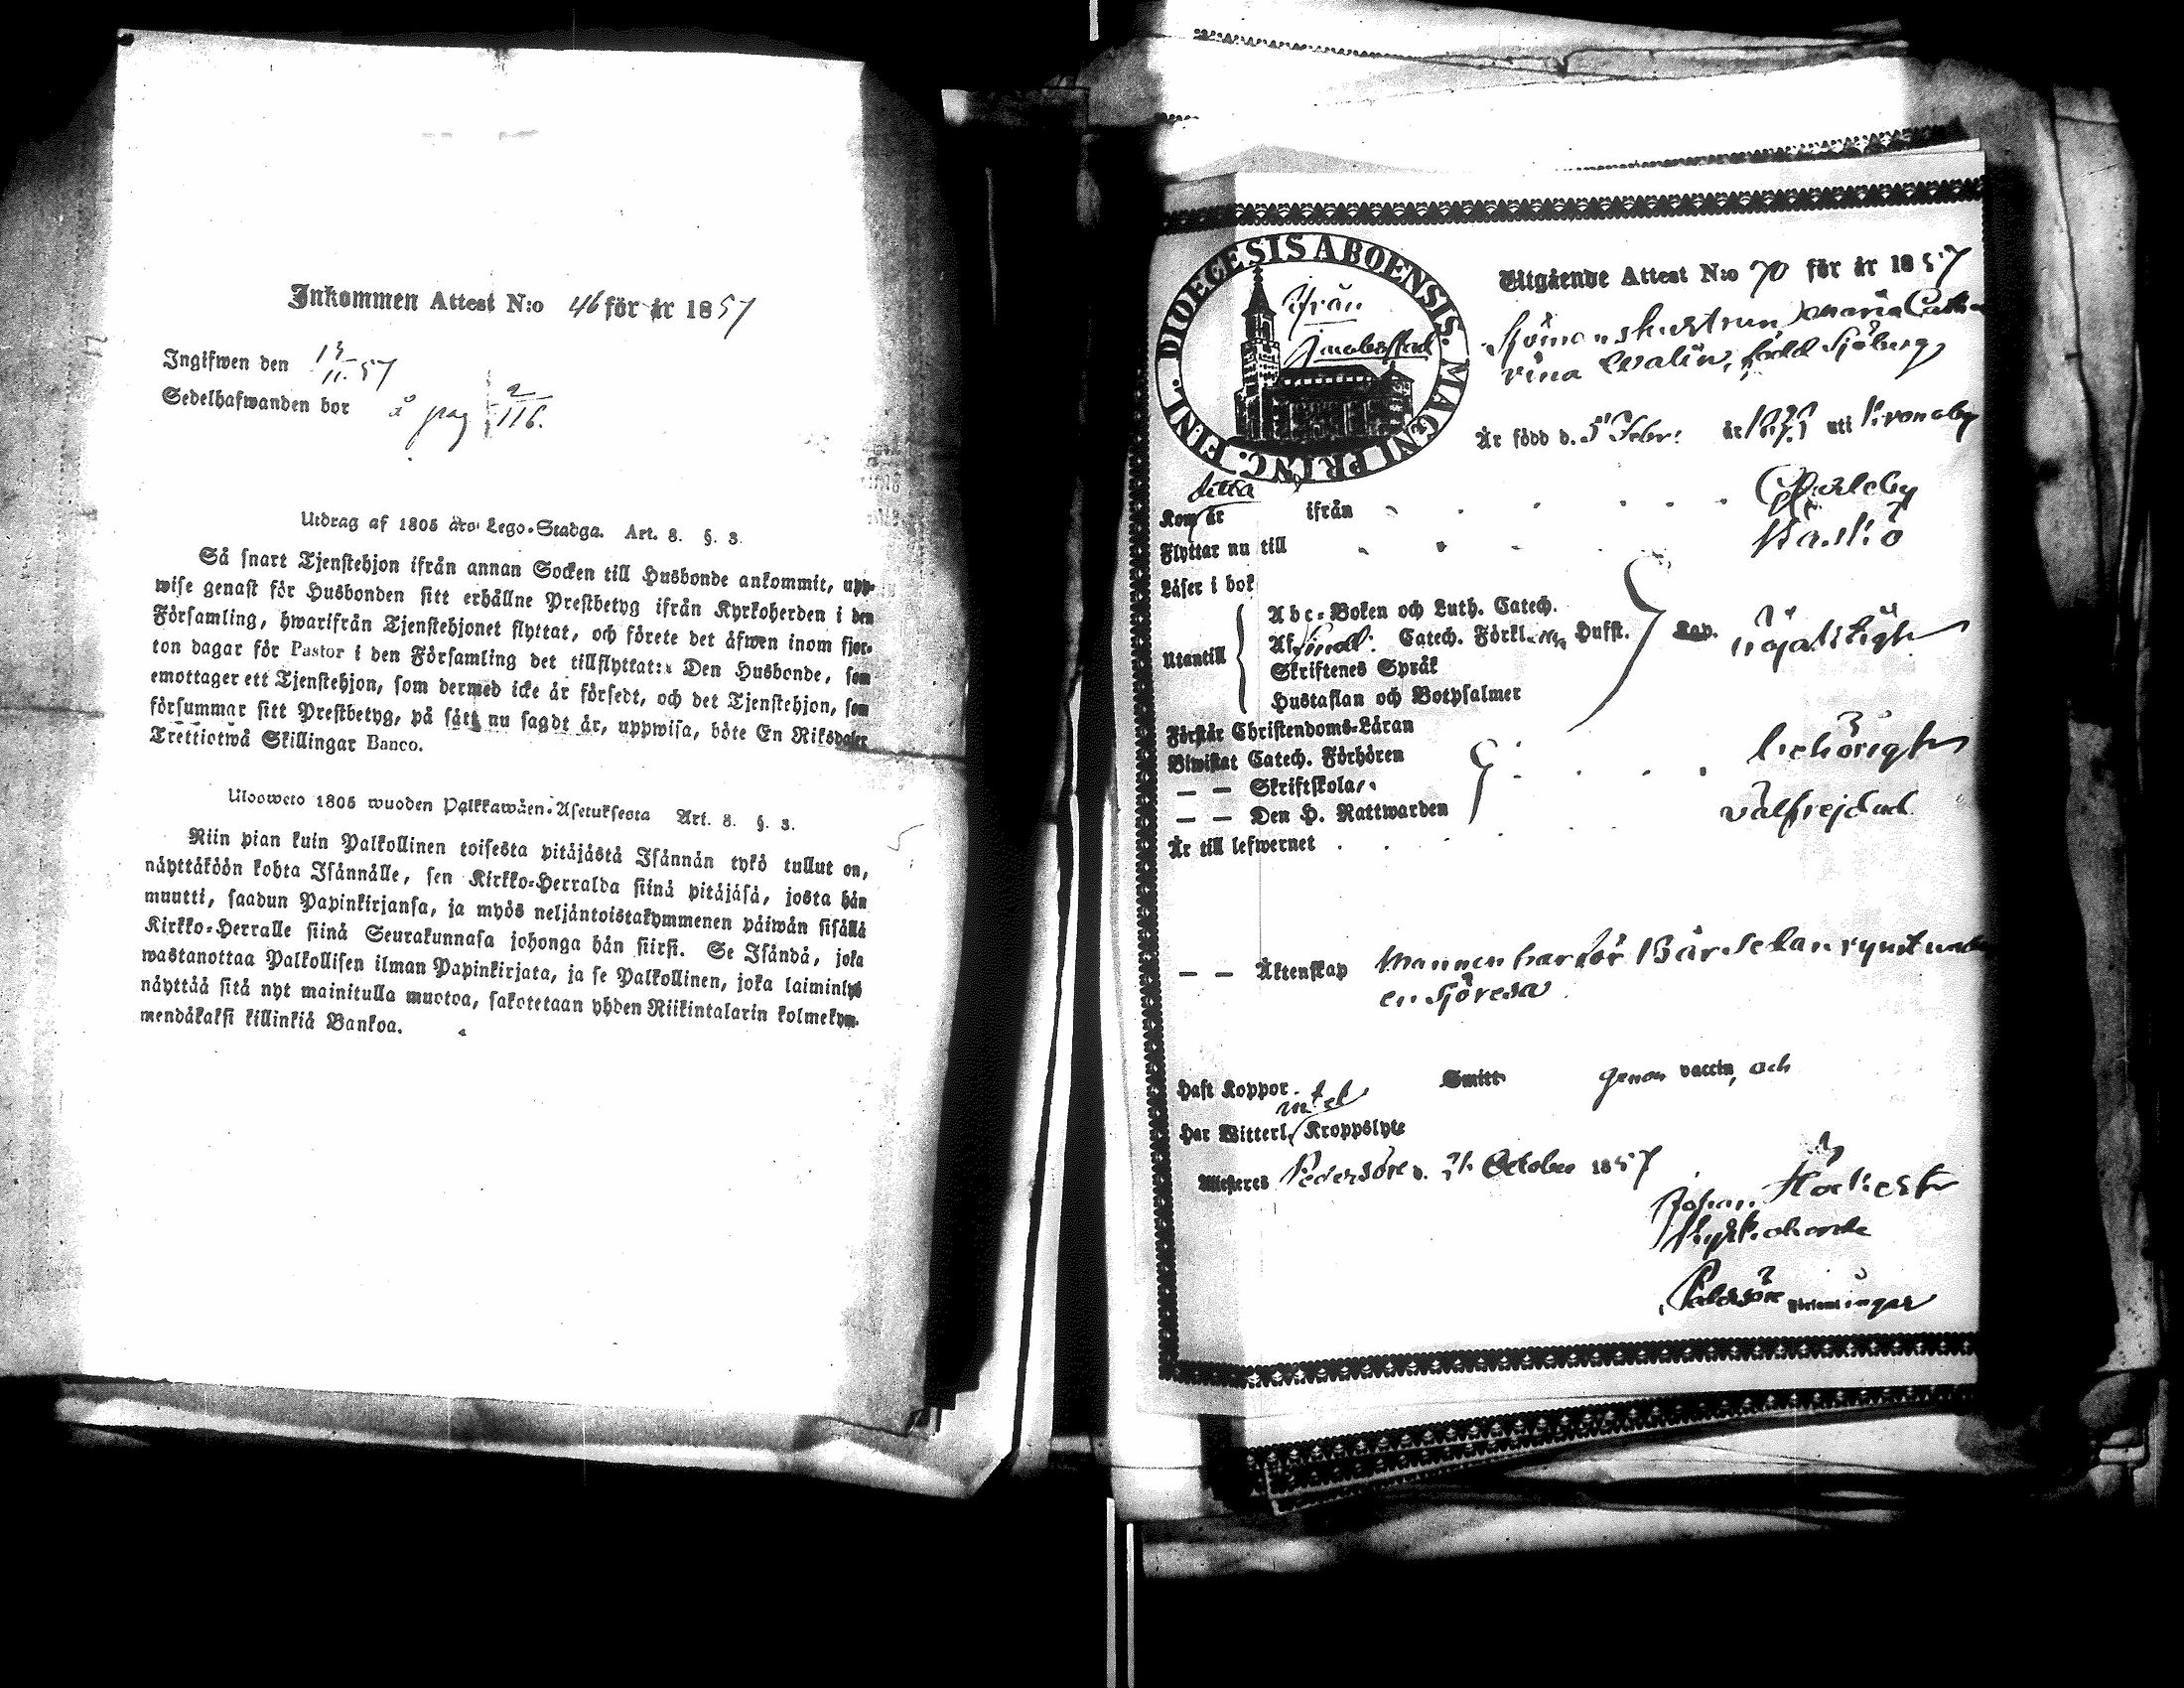 Inkommen Attest N:o 46 för år 1857
Ingifwen den 13/11 57
Sedelhafwanden bor å pag 2/116.
Utdrag af 1805 års Lego-Stadga. Art. 8. §. 3.
Så snart Tjenstehjon ifrån annan Socken till Husbonde ankommit, upp-
wise genast för Husbonden sitt erhållne Prestbetyg ifrån Kyrkoherden i den
Församling, hwarifrån Tjenstehjonet flyttat, och förete det äfwen inom fjor-
ton dagar för Pastor i den Församling det tillflyttat: Den Husbonde, som
emottager ett Tjenstehjon, som dermed icke är försedt, och det Tjenstehjon, som
försummar sitt Prestbetyg, på sätt nu sagdt är, uppwisa, böte En Riksdaler
Trettiotwå Skillingar Banco.
Ulosweto 1805 wuoden Palkkawäen-Asetuksesta Art. 8. §. 3.
Niin pian kuin Palkollinen toisesta pitäjästä Isännän tykö tullut on,
näyttäköön kohta Isännälle, sen Kirkko-Herralda siinä pitäjäsä, josta hän
muutti, saadun Papinkirjansa, ja myös neljäntoistakymmenen päiwän sisällä
Kirkko-Herralle siinä Seurakunnasa johonga hän siirsi. Se Isändä, joka
wastanottaa Palkollisen ilman Papinkirjata, ja se Palkollinen, joka laiminlyö
näyttää sitä nyt mainitulla muotoa, sakotetaan yhden Riikintalarin kolmekym-
mendäkaksi killinkiä Bankoa.
DIOECESIS ABOENSIS. MAGNI PRINC. FINL.
ifrån
Jacobstad
Utgående Attest N:o 70 för år 1857
Sjömanshustrun Maria Catha
rina Walin, född Sjöberg
Är född d. 5 Febr: år uti Kronoby
detta
Kom år ifrån Carleby
Flyttar nu till Kaskö
Läser i bok
Utantill
Abc-Boken och Luth. Catech.
Af Catech. Förkl. Hufst. Kap. nöjaktigt
Skriftenes Språk
Hustaflan och Botpsalmer
Förstår Christendoms-Läran
Biwistat Catech. Förhören behörigt
— — Skriftskolar
— — Den H. Nattwarden
Är till lefwernet välfrejdad
— — Äktenskap Mannen har för Bärselan rymt under
en sjöresa
Haft Koppor Smitt genom vaccin, och
intet
Har Witterl. Kroppslyte
Attesteras Pedersöre d. October 1857
Johan
Kyrkoherde
Pedersöre Församlingar